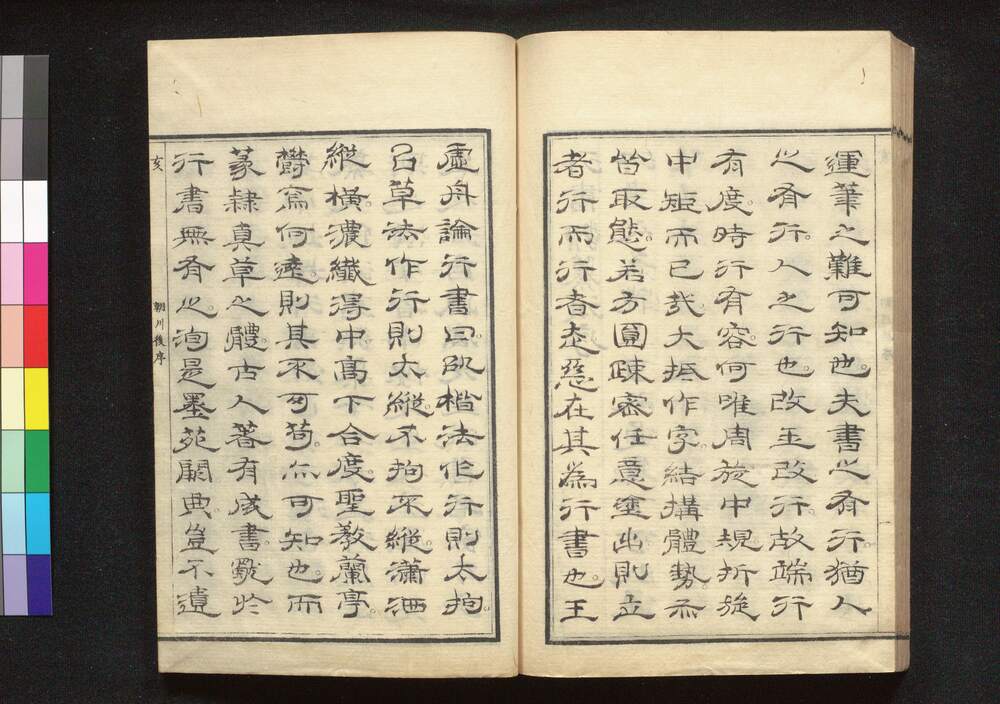 運筆之難可知也。夫書之有行。猶人
之有行。人之行也。改玉改行。故端行
有度。時行有容。何唯周旋中規。折旋
中矩而已哉。大抵作字結構體勢。亦
皆取態。若方圓疎密任意塗出。則立
者行而行者走。惡在其為行書也。王
虛舟論行書曰。以楷法作行則太拘。
以草法作行則太縱。不拘不縱。瀟洒
縱橫。濃纖得中。高下合度。聖教蘭亭。
鬱焉何遠。則其不可苟。亦可知也。而
篆隸真草之體。古人著有成書。獨於
行書無有之。洵是墨苑闕典。豈不遺
亥
朝川後序